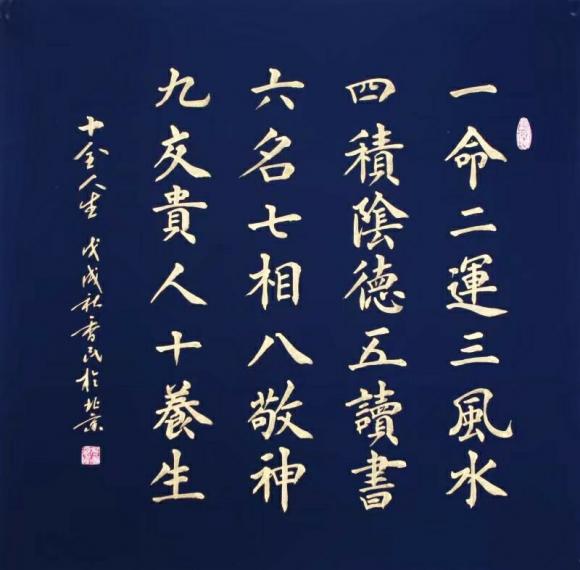 一命二運三風水
四積陰德五讀書
六名七相八敬神
九交貴人十養生
十全人生 戊戌秋香民於北京